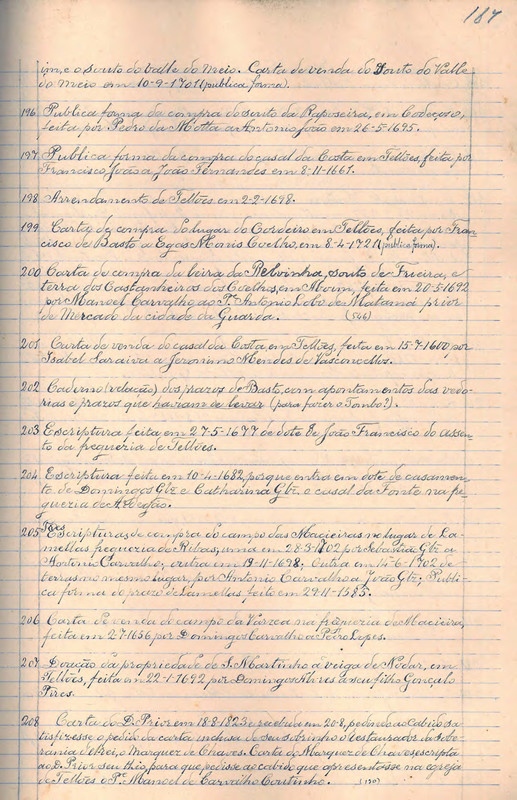 187
im, e o souto do valle do meio. Carta de venda do Souto do Valle
do meio em 10-9-1701 (publica forma).
196 Publica forma de compra do souto da Raposeira, em Codeçoso,
feita por Pedro da Motta a Antonio João em 26-5-1695.
197 Publica forma da compra do casal da Costa em Tellões, feita por
Francisco João a João Fernandes em 8-11-1661.
198 Arrendamento de Tellões em 2-2-1698.
199 Carta de compra do lugar do Cordeiro em Tellões, feita por Fran-
cisco de Basto a Egas Monis Coelho, em 8-4-1721 (publica forma).
200 Carta de compra da leira da Relvinha, souto de Frieira, e
terra dos Castanheiros dos Coelhos, em feita em 20-5-1692
por Manoel Carvalho ao Pe. Antonio Lobo de Matamá prior
de Mercado da cidade da Guarda. (546)
201 Carta de venda do casal da Costa, em Tellões, feita em 15-7-1600 por
Isabel Saraiva a Jeronimo Mendes de Vasconcellos.
202 Caderno (relação) dos prazos de Basto, com apontamentos das vedo-
rias e prazos que haviam de levar (para fazer o Tombo?).
203 Escriptura feita em 27-5-1677 de dote de João Francisco do assen-
to da freguezia de Tellões.
204 Escriptura feita em 10-4-1682 porque entra em dote de casamen-
to de Domingos Glz e Catharina Glz. o casal da Fonte na fre-
gueria de
205 Tres Escripturas de compra do campo das Macieiras no lugar de La-
mellas freguezia de Ribas; uma em 28-3-1702 por Sebastião Glz a
Antonio Carvalho; outra em 19-11-1698; Outra em 14-6-1702 de
terras no mesmo lugar, por Antonio Carvalho a João Glz; Publi-
ca forma do prazo de Lamellas feito em 29-11-1585.
206 Carta de venda do campo da Varzea na freguezia de Macieira,
feita em 2-7-1656 por Domingos Carvalho a Pedro Lopes.
207 Doação da propriedade de S. Martinho a veiga de Nodar, em
Tellões, feita em 22-1-1692 por Domingos Alves a seu filho Gonçalo
Pires.
208 Carta do D. Prior em 18-8-1823 e recebida em 20-8, pedindo ao cabido sa-
tisfizesse o pedido da carta inclusa de seu sobrinho o restaurador da sobe-
rania de Rei, o Marquez de Chaves. Carta do Marquez de Chaves escripta
ao D. Prior seu thio, para que pedisse ao cabido que apresentasse na egreja
de Tellões o Pe. Manoel de Carvalho Coutinho. (170)